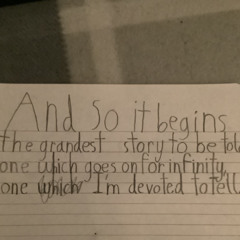 And so it begins
the grandest story to be told
one which goes on for infinity,
one which I'm devoted to tell